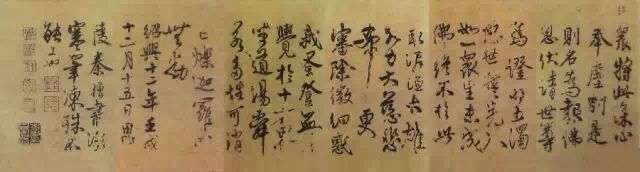 衆將此深心
奉塵刹是
則名為報佛
恩伏請世尊
為證明五濁
惡世誓先入
如一衆生未成
佛終不於此
取泥洹大雄
大力大慈悲
希更
審除微細惑
令我早登無上
覺於十方界
坐道場舜
若多性可消
亡爍迦羅心
無動
紹興十二年壬戌
十二月十五日
陵秦檜書
寒筆凍殊不
能工